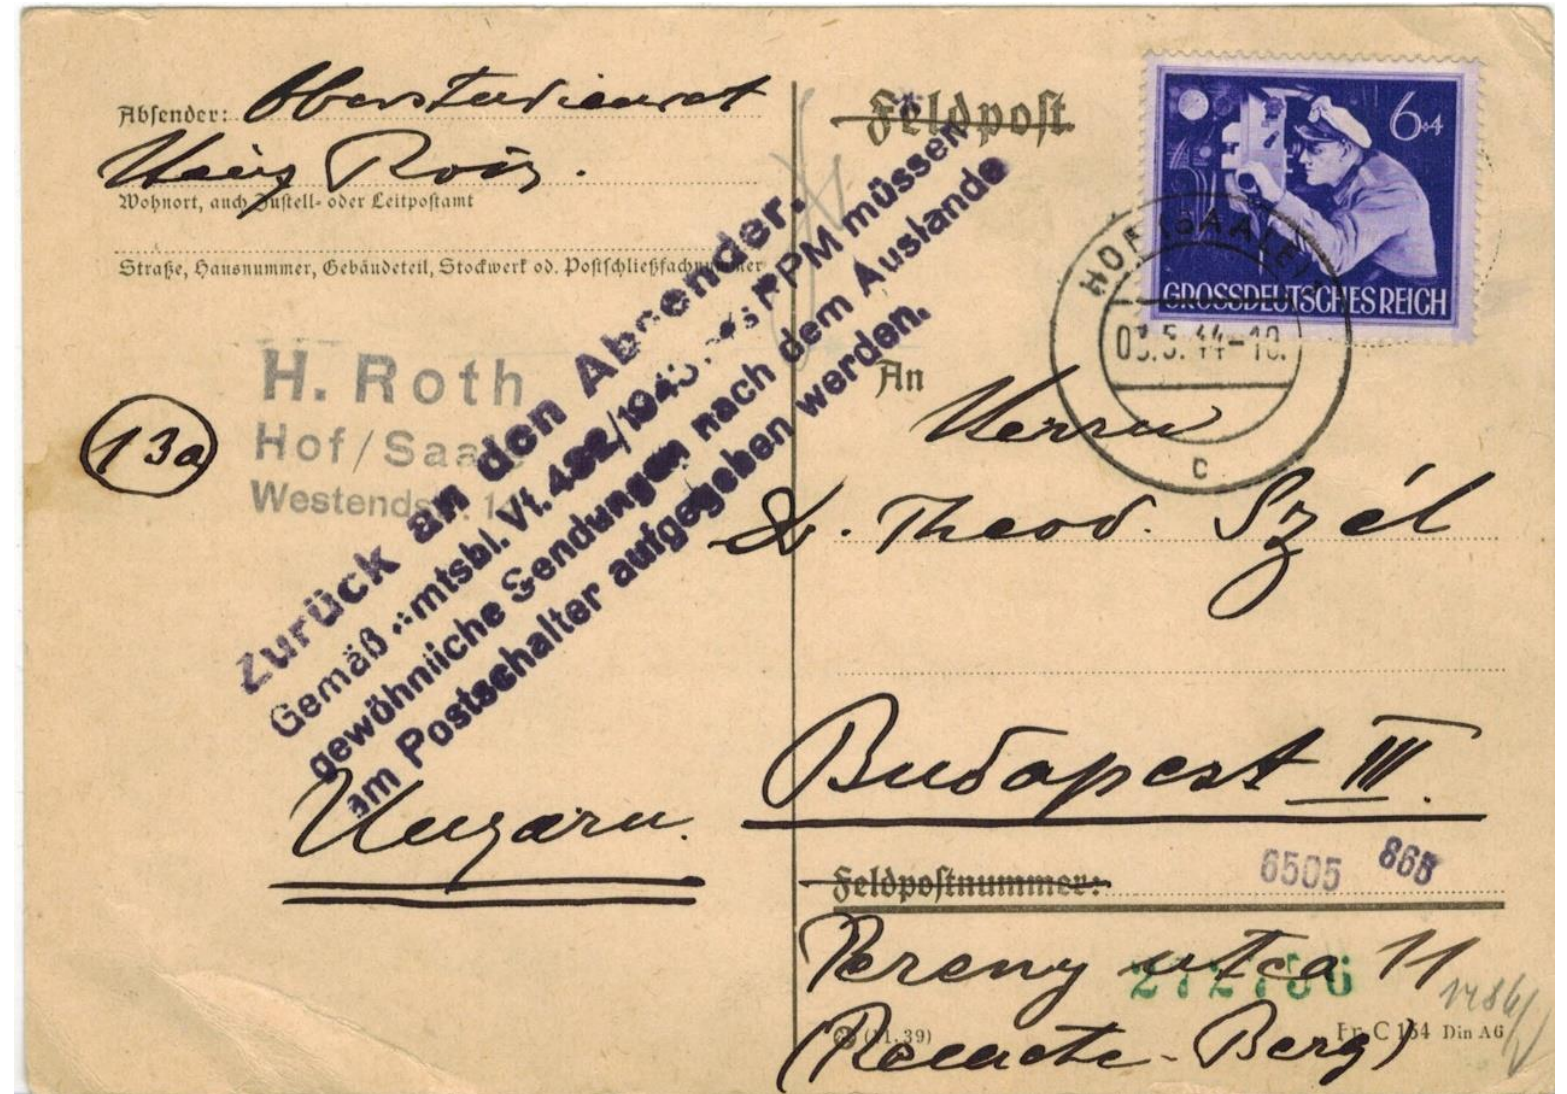 Absender: Oberstudienrat
Heinz Roth.
Wohnort, auch Zustell- oder Leitpostamt
Straße, Hausnummer, Gebäudeteil, Stockwerk od. Postschließfachnummer
H. Roth
Hof/Saale
13a
Zurück an den Absender.
Gemäß Amtsbl. Vf. RPM müssen
gewöhnliche Sendungen nach dem Auslande
am Postschalter aufgegeben werden.
Ungarn.
Feldpost
6+4
GROSSDEUTSCHES REICH
HOF (SAALE)
03.5.44-18.
c
An
Herrn
Dr. Theod. Szél
Budapest III.
6505 865
Feldpostnummer:
utca 11
272756
Berg)
(11.39)
Fr. C 154 Din A6